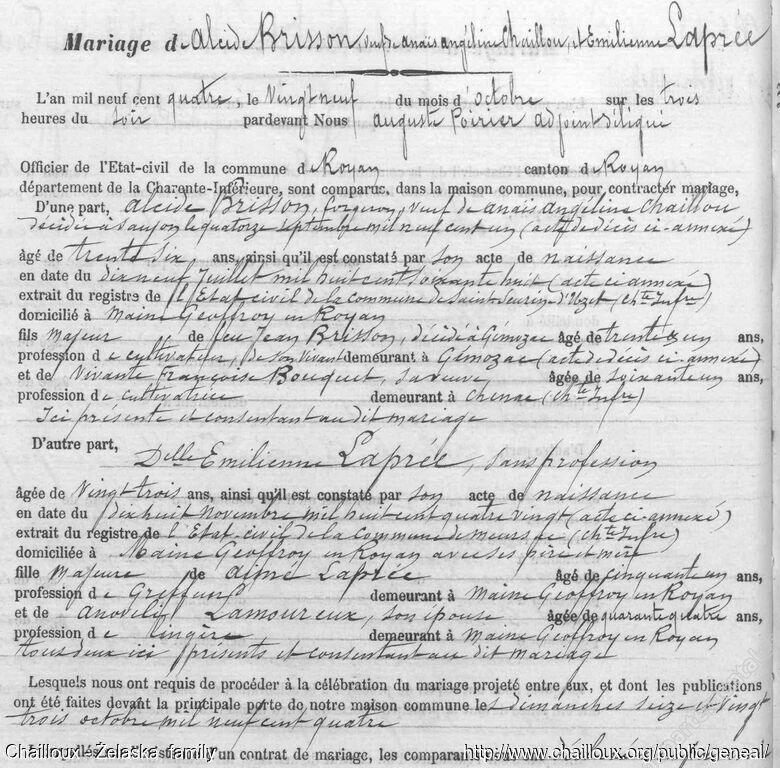 Mariage de Alcide Brisson, veuf de Anaïs Angéline Chaillou, et Emilienne Laprée
L'an mil neuf cent quatre, le Vingt neuf du mois d'octobre sur les trois
heures du soir pardevant Nous Auguste Poirier adjoint délégué
Officier de l'Etat-civil de la commune de Royan canton de Royan
département de la Charente-Inférieure, sont comparus, dans la maison commune, pour contracter mariage,
D'une part, Alcide Brisson, forgeron, veuf de Anaïs Angéline Chaillou
décédée à Saujon le quatorze septembre mil neuf cent un (acte de décès ci-annexé)
âgé de trente six ans, ainsi qu'il est constaté par son acte de naissance
en date du dix neuf Juillet mil huit cent soixante huit (acte ci annexé)
extrait du registre de l'Etat civil de la commune de Saint Seurin d'Uzet (Chte Infre)
domicilié à Maine Geoffroy en Royan
fils Majeur de feu Jean Brisson, décédé à Gémozac âgé de trente un ans,
profession de cultivateur, de son vivant demeurant à Gémozac (acte de décès ci-annexé)
et de Vivante Françoise Bouquet, sa veuve âgée de soixante un ans,
profession de cultivatrice demeurant à Chenac (Chte Infre)
Ici présente et consentant au dit mariage
D'autre part, Delle Emilienne Laprée, sans profession
âgée de Vingt trois ans, ainsi qu'il est constaté par son acte de naissance
en date du dix huit Novembre mil huit cent quatre vingt (acte ci-annexé)
extrait du registre de l'Etat civil de la Commune de Meursac (Chte Infre)
domiciliée à Maine Geoffroy en Royan avec ses père et mère
fille Majeure de Aimé Laprée âgé de cinquante un ans,
profession de demeurant à Maine Geoffroy en Royan
et de Lamoureux, son épouse âgée de quarante quatre ans,
profession de lingère demeurant à Maine Geoffroy en Royan
tous deux ici présents et consentant au dit mariage
Lesquels nous ont requis de procéder à la célébration du mariage projeté entre eux, et dont les publications
ont été faites devant la principale porte de notre maison commune les dimanches seize et Vingt
trois octobre mil neuf cent quatre
Chailloux-Żelaska family http://www.chailloux.org/public/geneal/
un contrat de mariage, les comparants nous ont